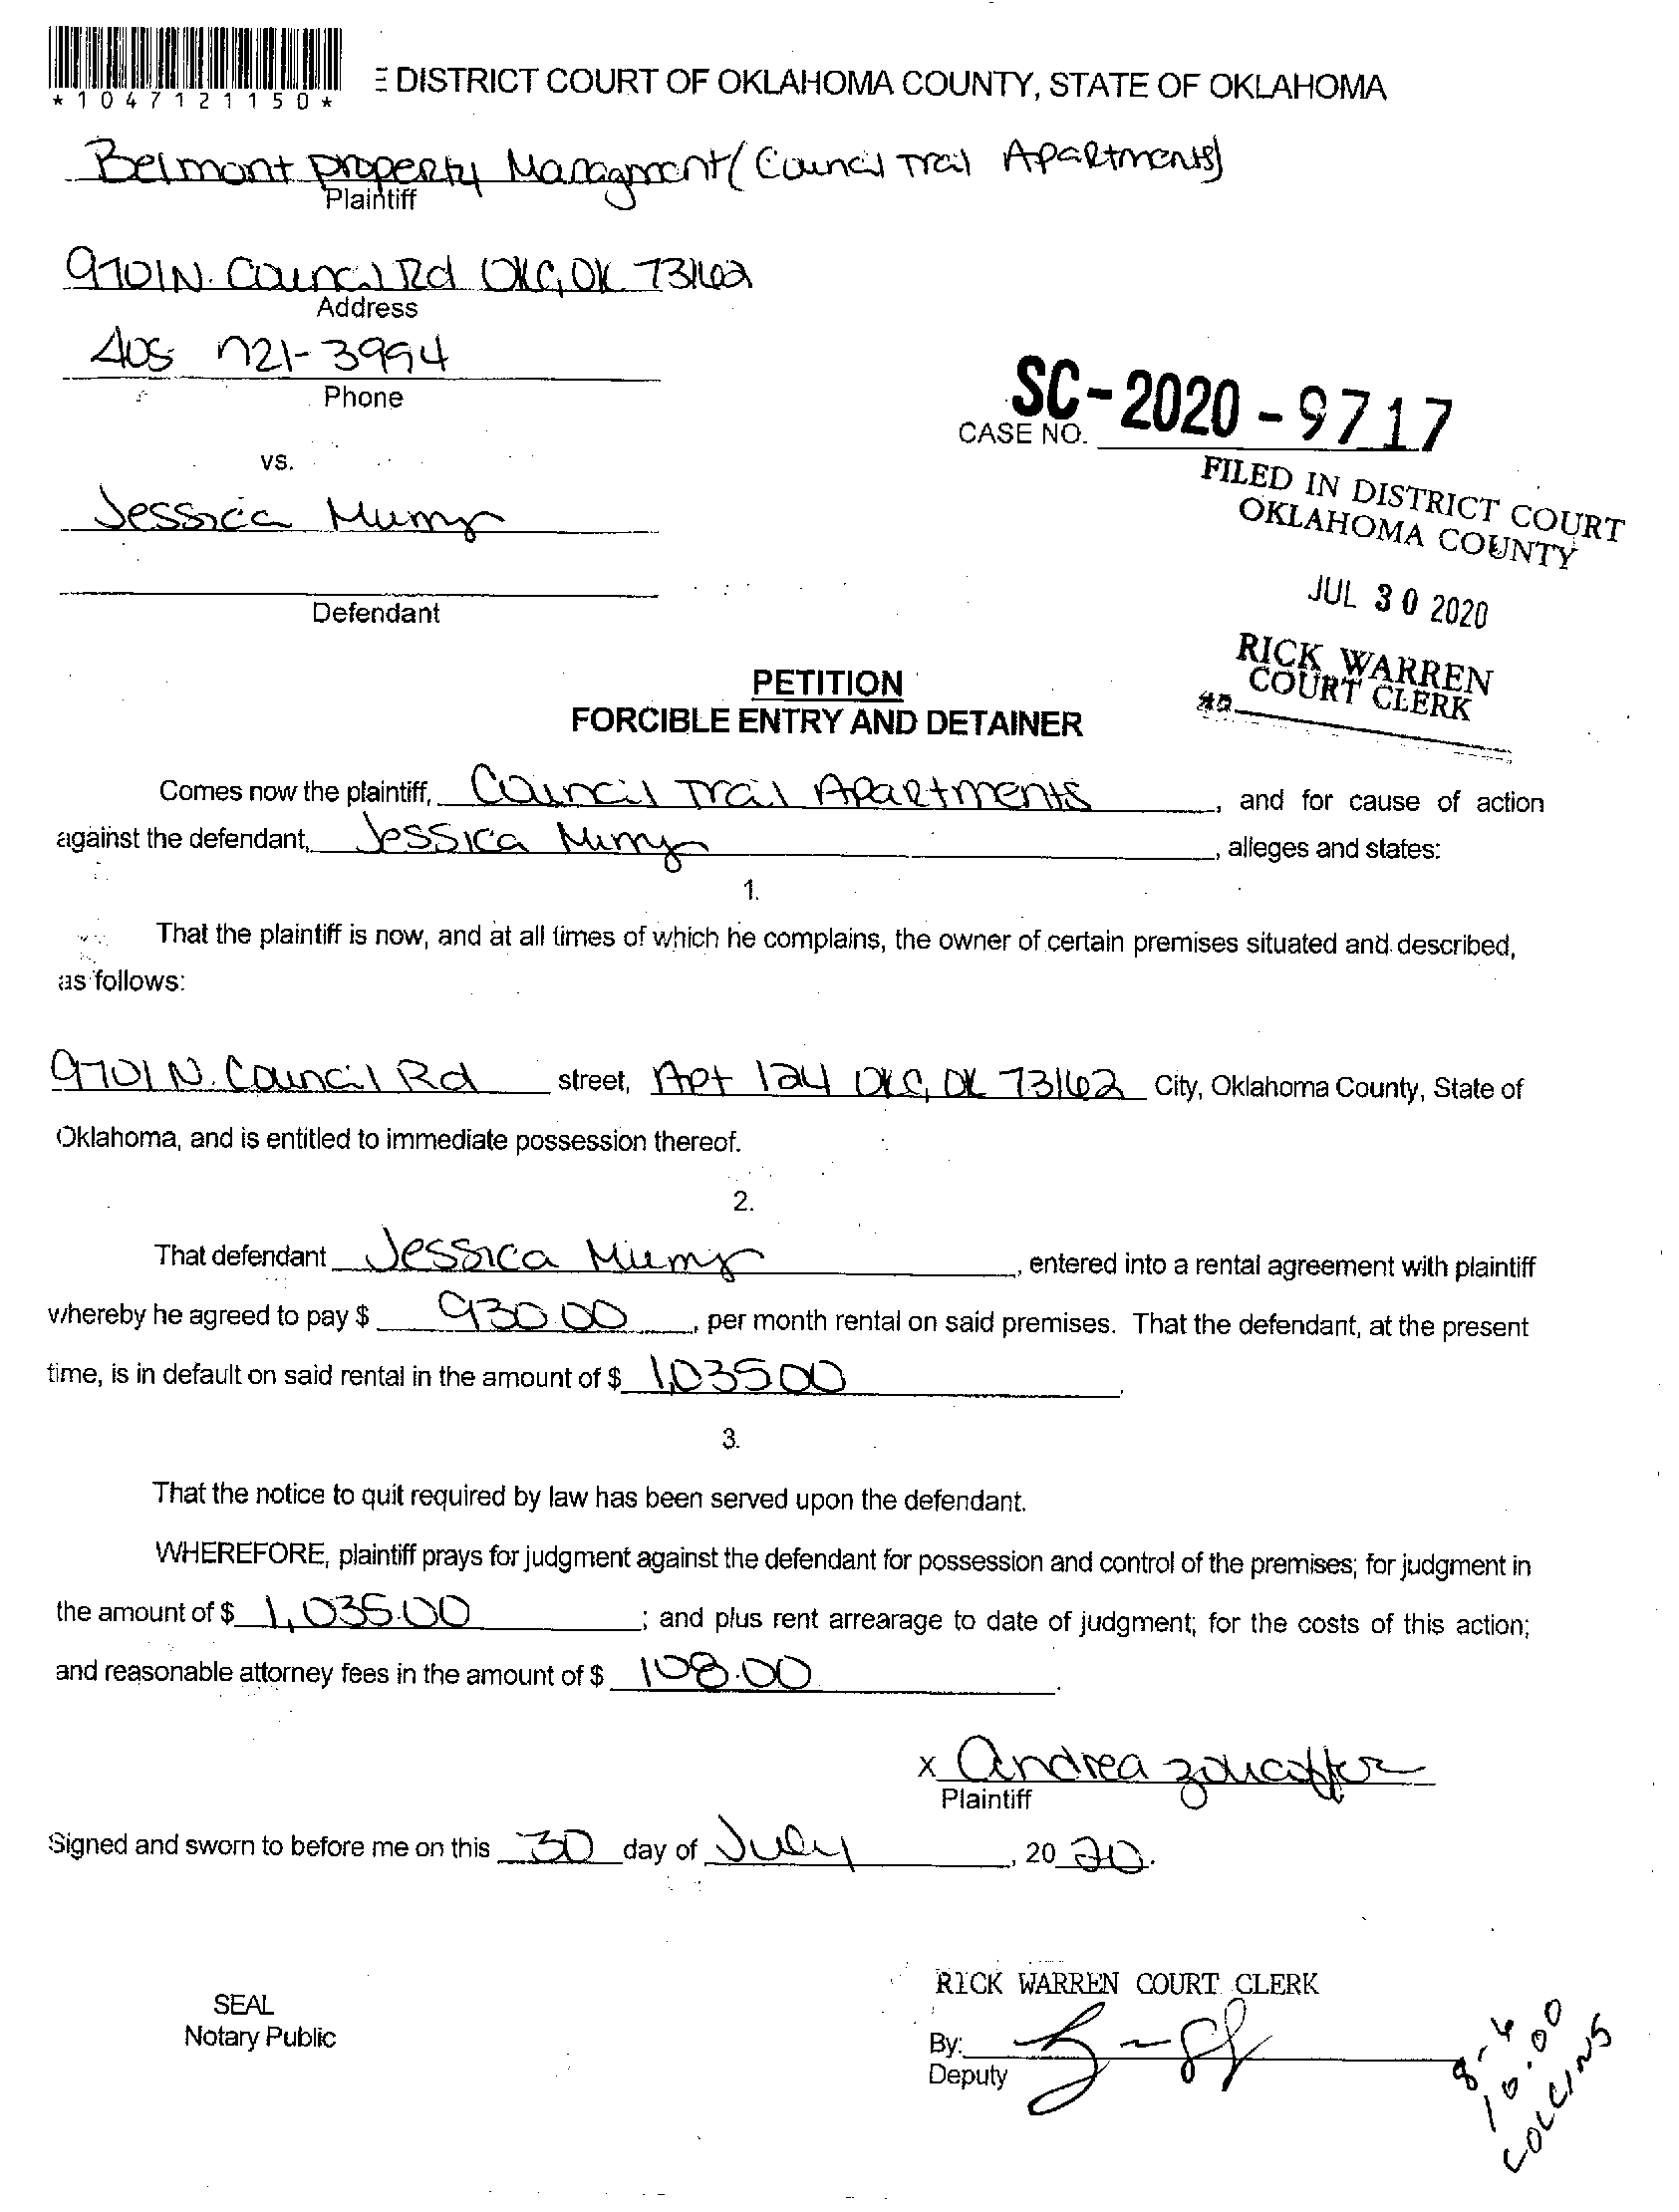 *1047121150*
E DISTRICT COURT OF OKLAHOMA COUNTY, STATE OF OKLAHOMA
Belmont Property Managment (Council Trail Apartments)
Plaintiff
9701 N. Council Rd OKC, OK 73162
Address
405 721-3994
Phone
SC-2020-9717
CASE NO.
vs.
FILED IN DISTRICT COURT
OKLAHOMA COUNTY
Jessica Mumy
JUL 30 2020
Defendant
RICK WARREN
COURT CLERK
PETITION
FORCIBLE ENTRY AND DETAINER
Comes now the plaintiff, Council Trail Apartments, and for cause of action
against the defendant, Jessica Mumy, alleges and states:
1.
That the plaintiff is now, and at all times of which he complains, the owner of certain premises situated and described,
as follows:
9701 N. Council Rd street, Apt 124 OKC, OK 73162 City, Oklahoma County, State of
Oklahoma, and is entitled to immediate possession thereof.
2.
That defendant Jessica Mumy, entered into a rental agreement with plaintiff
whereby he agreed to pay $ 930.00, per month rental on said premises. That the defendant, at the present
time, is in default on said rental in the amount of $ 1,035.00.
3.
That the notice to quit required by law has been served upon the defendant.
WHEREFORE, plaintiff prays for judgment against the defendant for possession and control of the premises; for judgment in
the amount of $ 1,035.00; and plus rent arrearage to date of judgment; for the costs of this action;
and reasonable attorney fees in the amount of $ 108.00.
x Andrea
Plaintiff
Signed and sworn to before me on this 30 day of July, 20 20.
RICK WARREN COURT CLERK
SEAL
Notary Public
By:
Deputy
8-6
10:00
COLLINS